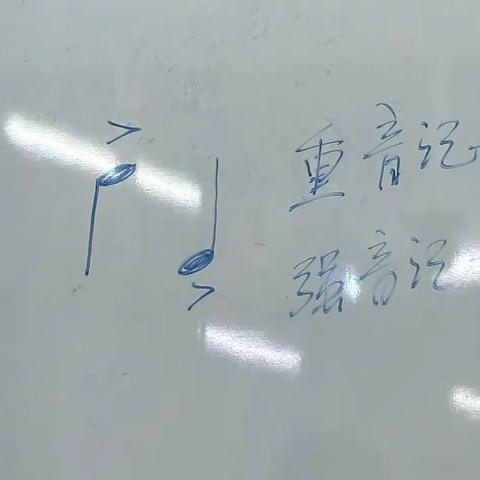 重音记
强音记